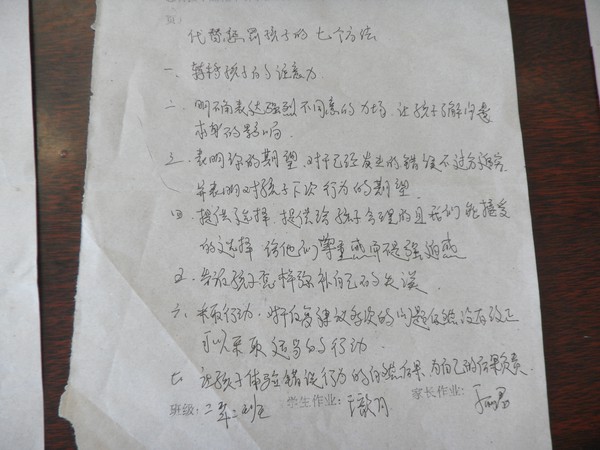 页）
代替惩罚孩子的七个方法
一、转移孩子的注意力
二、明确表达强烈不同意的立场，让孩子了解问题
的影响．
三、表明你的期望，对于已经发生的错误不过分追究
并表明对孩子下次行为的期望
四、提供选择，提供给孩子合理的且我们能接受
的选择 给他们尊重感而不是强迫感
五、告诉孩子怎样弥补自己的失误
六、采取行动，对于多次的问题依然没有改正
可以采取适当的行动
七、让孩子体验错误行为的自然后果，为自己的后果负责
班级：二年二班 学生作业： 家长作业：